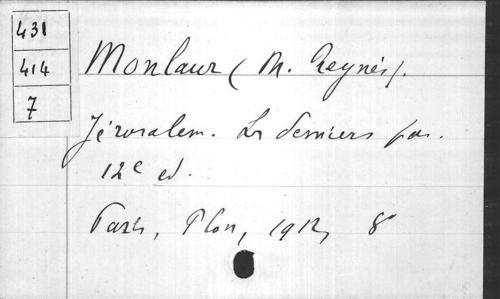 431
414
7
Monlaur (M. Reynès).
Jérusalem. Les derniers pas.
12e ed.
Paris, Plon, 1912, 8°